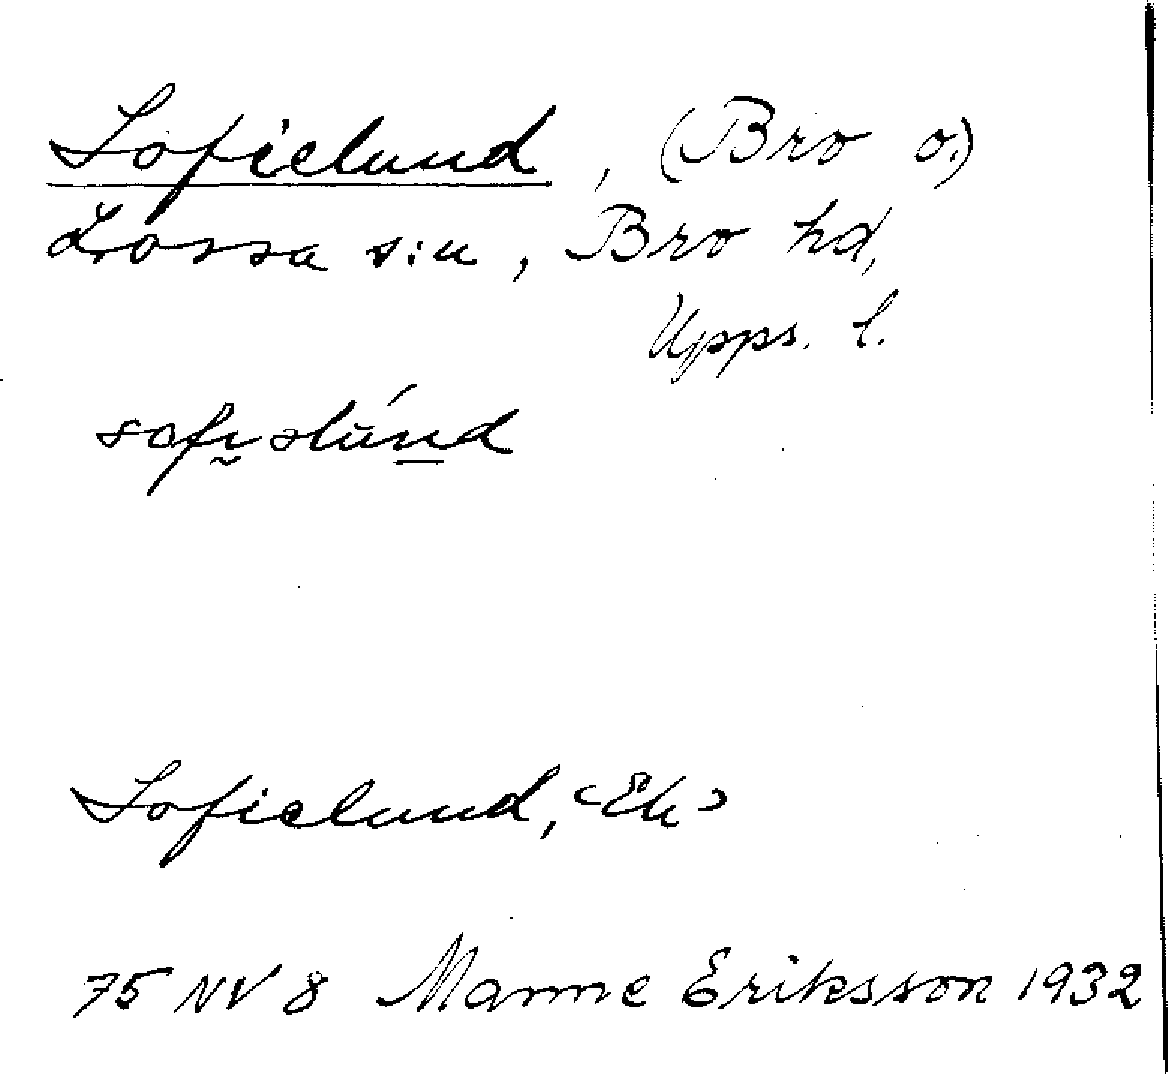 Sofielund, (Bro o.)
Lossa sn, Bro hd,
Upps. l.
sofḭəlún̲d
Sofielund, <Ek>
75 NV 8 Manne Eriksson 1932